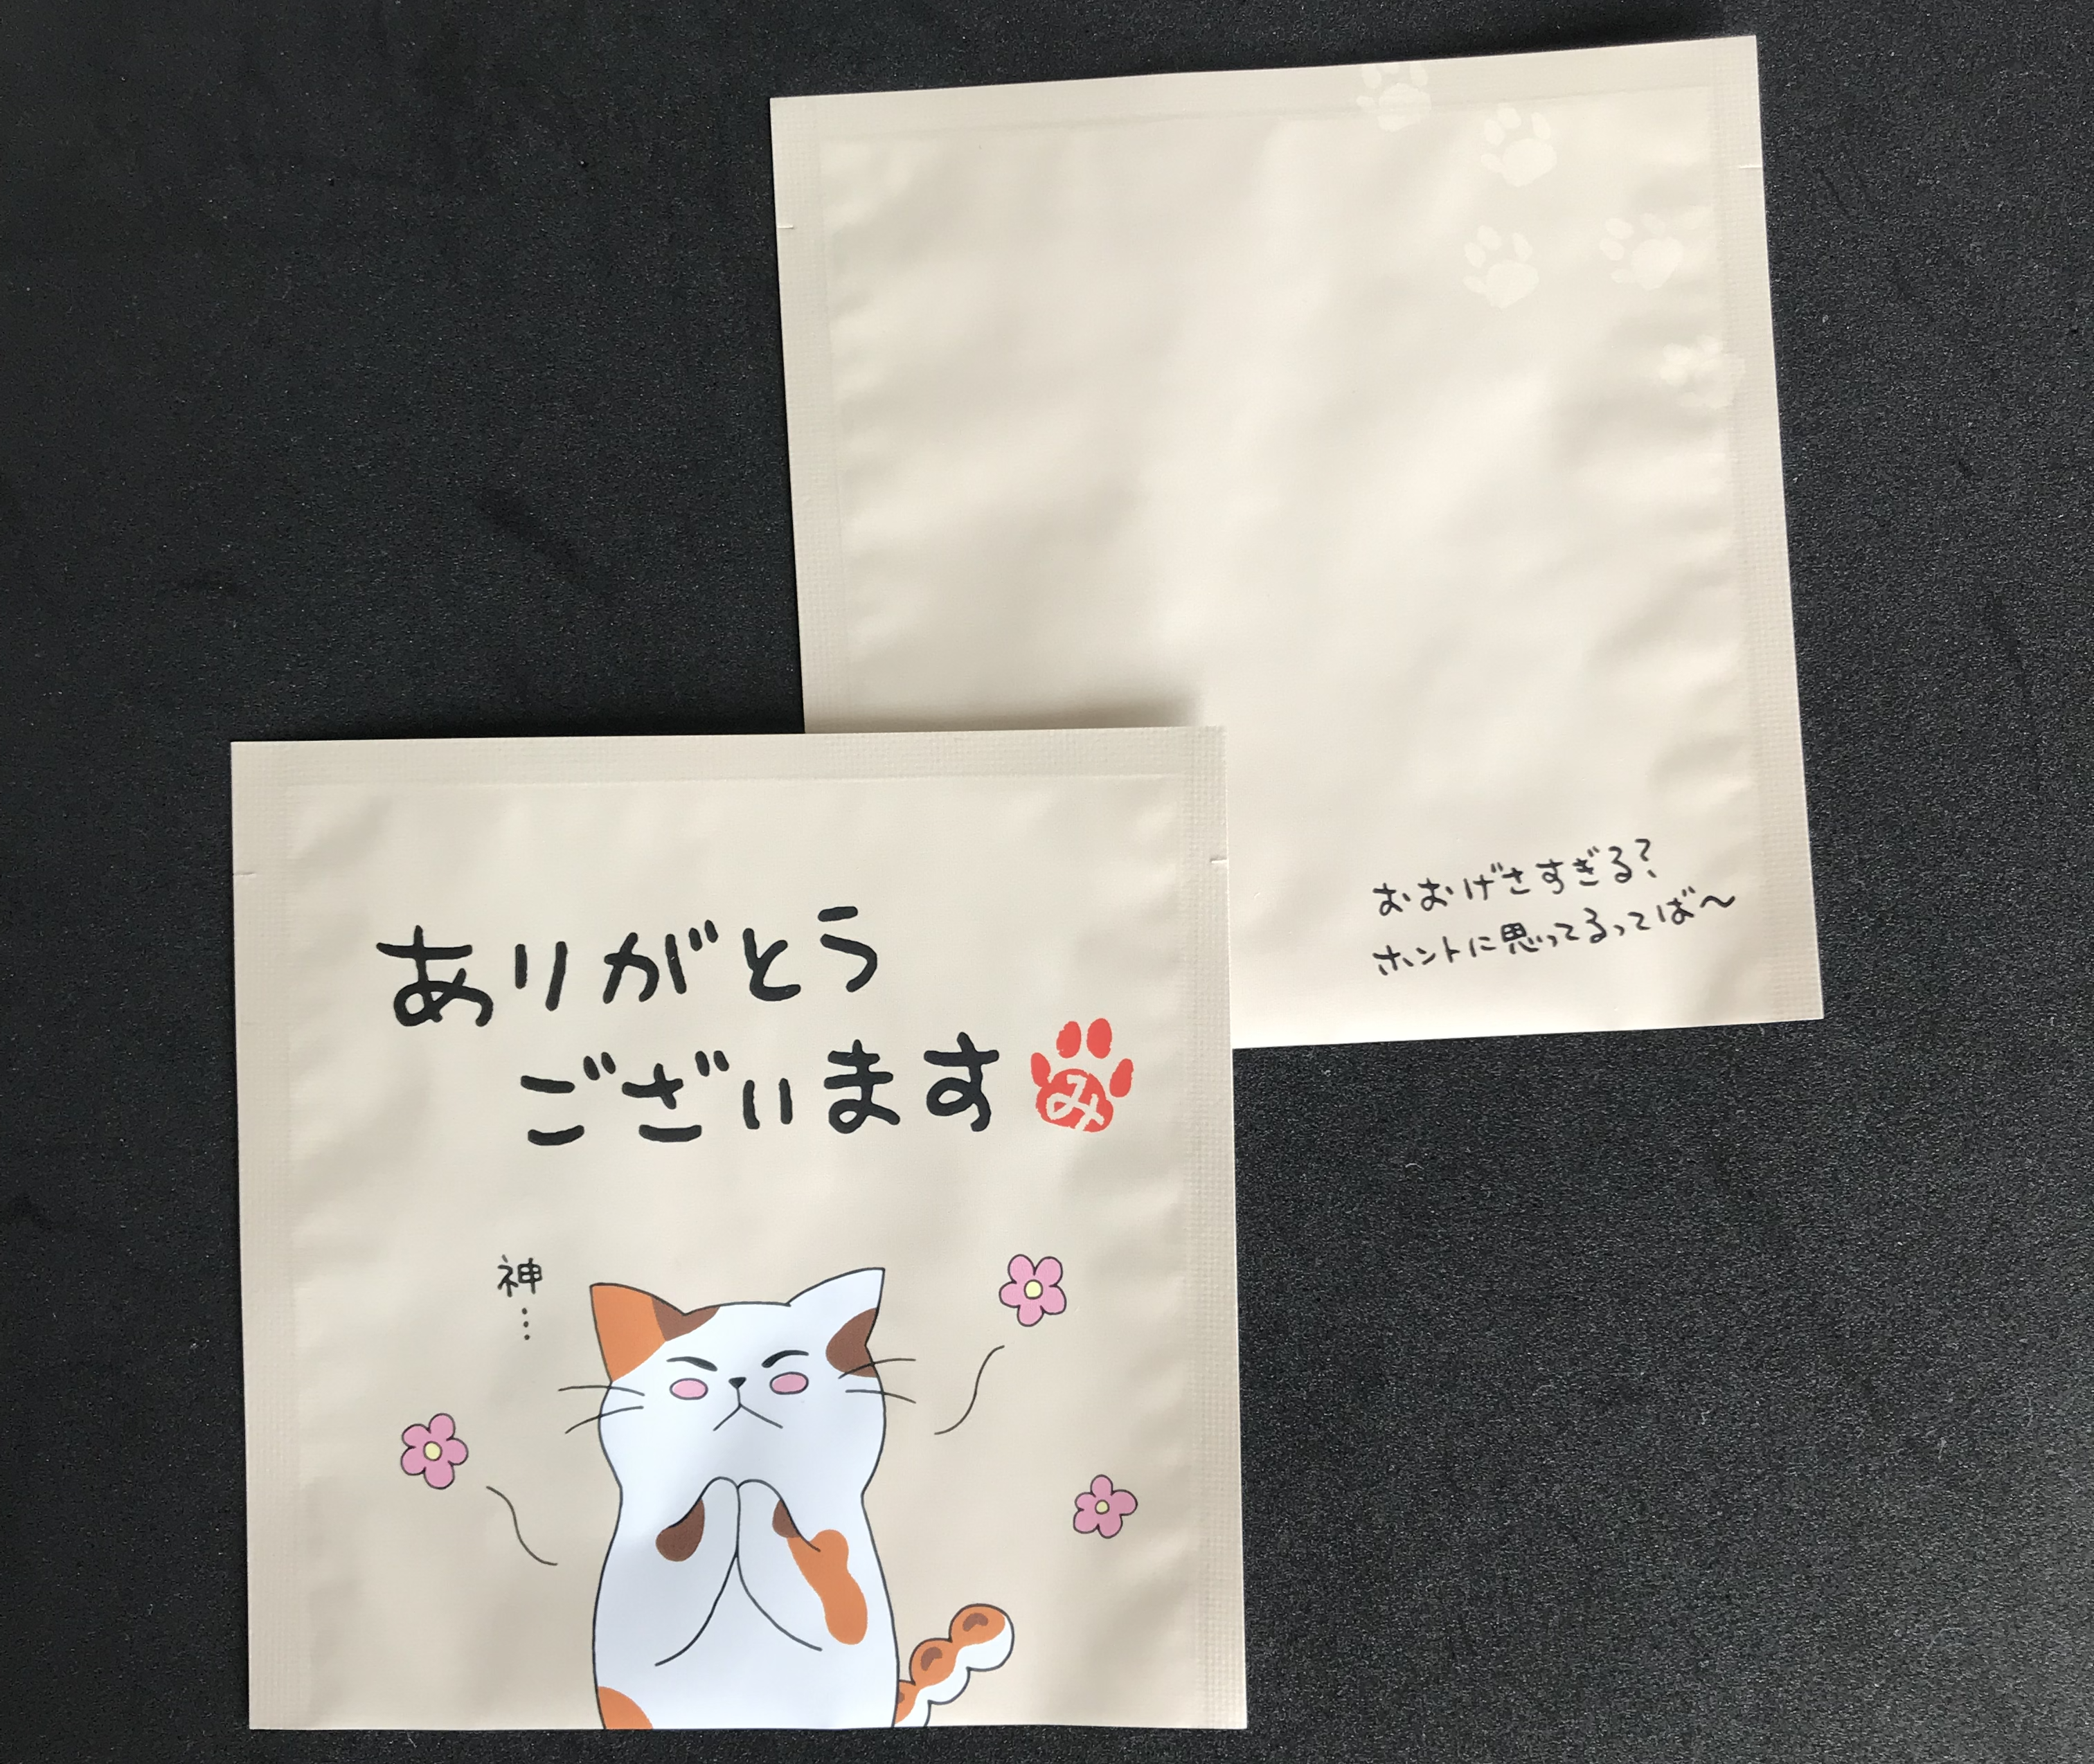 ありがとう
ございます
み
神
…
おおげさすぎる?
ホントに思ってるってば〜